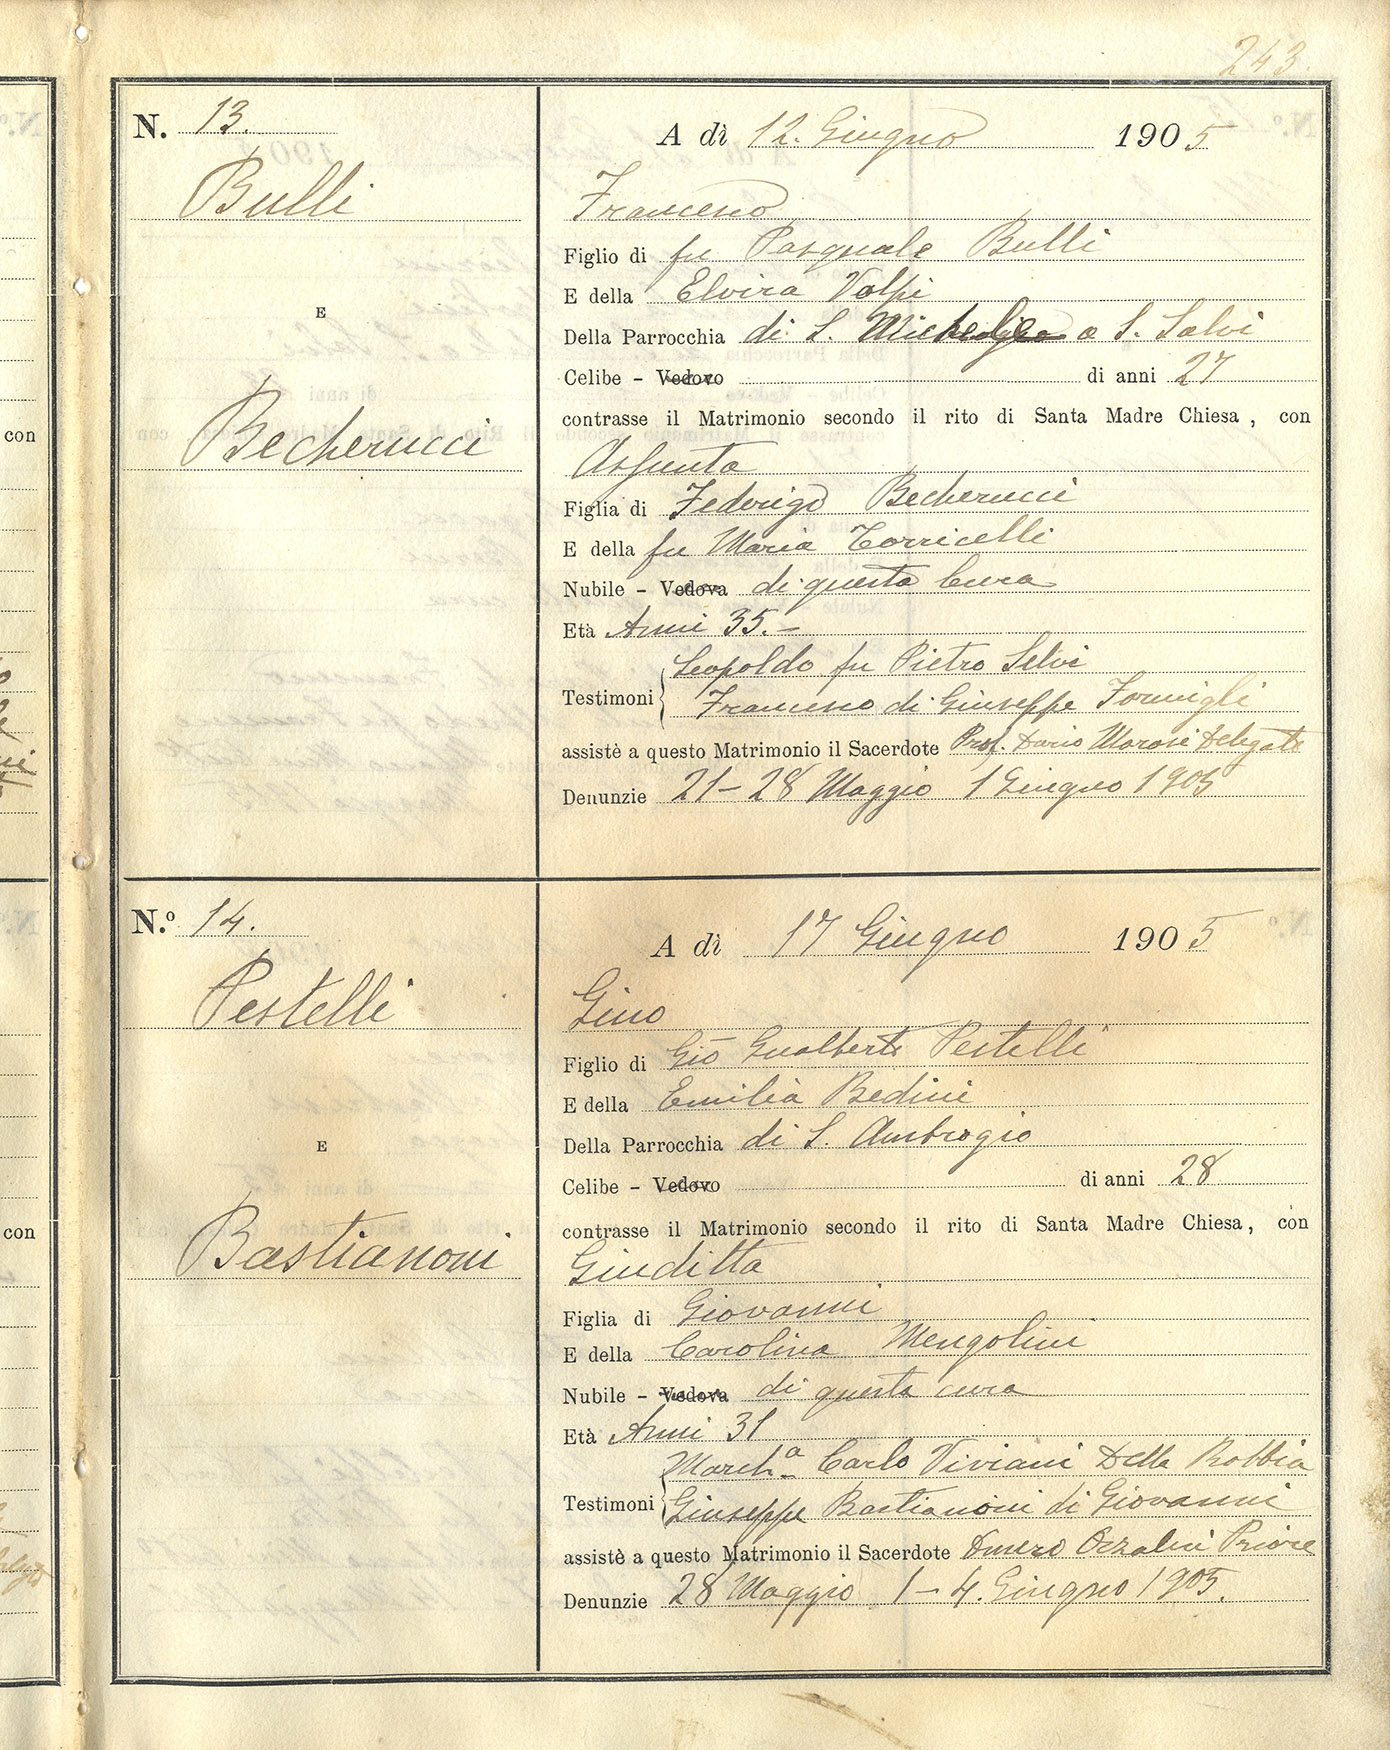 243.
N. 13.
Bulli
E
Becherucci
A dì 12. Giugno 1905
Francesco
Figlio di fu Pasquale Bulli
E della Elvira Volpi
Della Parrocchia di S. Michele a S. Salvi
Celibe - Vedovo di anni 27
contrasse il Matrimonio secondo il rito di Santa Madre Chiesa, con
Assunta
Figlia di Federigo Becherucci
E della fu Maria Torricelli
Nubile - Vedova di questa Cura
Età Anni 35.-
Leopoldo fu Pietro Selvi
Testimoni
Francesco di Giuseppe Formigli
assistè a questo Matrimonio il Sacerdote Prof. Dario Morosi Delegato
Denunzie 21-28 Maggio 1 Giugno 1905
N.º 14.
Pestelli
E
Bastianoni
A dì 17 Giugno 1905
Gino
Figlio di Gio Gualberto Pestelli
E della Emilia Bedini
Della Parrocchia di S. Ambrogio
Celibe - Vedovo di anni 28
contrasse il Matrimonio secondo il rito di Santa Madre Chiesa, con
Giuditta
Figlia di Giovanni
E della Carolina Mengolini
Nubile - Vedova di questa cura
Età Anni 31
March.ª Carlo Viviani Della Robbia
Testimoni
Giuseppe Bastianoni di Giovanni
assistè a questo Matrimonio il Sacerdote Priore
Denunzie 28 Maggio 1-4. Giugno 1905.
con
con